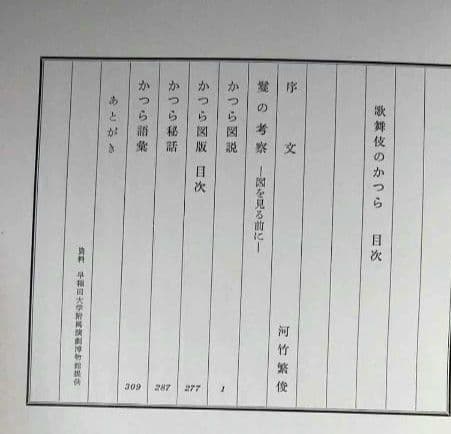 歌舞伎のかつら 目次
序文 河竹繁俊
鬘の考察 ―図を見る前に―
かつら図説 1
かつら図版 目次 277
かつら秘話 287
かつら語彙 309
あとがき
資料 早稲田大学附属演劇博物館提供